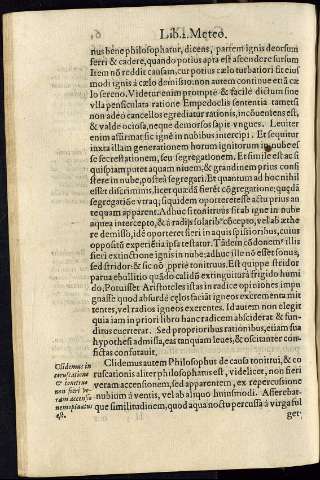 Lib.2. Meteo.
nus bene philosophatur, dicens, partem ignis deorsum
ferri & cadere, quando potius apta est ascendere sursum
Item nō reddit causam, cur potius cælo turbatiori fit eius
modi ignis à cælo desumptio: non autem continue etiā cæ
lo sereno. Videtur enim prompte & facile dictum sine
vlla pensiculata ratione Empedoclis sententia tametsi
non adeo cancellos egrediatur rationis, incōueniens est,
& valde ociosa, neque demorsos sapit vngues. Leuiter
enim affirmat sic ignē in nubibus intercipi. Et sequitur
iuxta illam generationem horum ignitorum in nube es
se secrestationem, seu segregationem. Et simile est ac si
quispiam putet aquam niuem, & grandinem prius consi
stere in nube, posteà segregari. Et quantum ad hoc nihil
esset discriminis, licet quædā fierēt cōgregatione; quædā
segregatiōe vtraq; siquidem oporteret esse actu prius an
tequam apparent. Adhuc si tonitrus fit ab igne in nube
aquea intercepto, & à radijs solaribus cōcepto, vel ab æthe
re demisso, idē oporteret fieri in aquis spissioribus, cuius
oppositū experiētia ipsa testatur. Tādem cōdonemus illis
fieri extinctione ignis in nube; adhuc ille nō esset sonus,
sed stridor: & sic nō propriè tonitruus. Est quippe stridor
parua ebullitio quādo calidū extinguitur à frigido humi
do. Potuisset Aristoteles istas in radice opiniones impu
gnasse quod absurdè celos faciāt igneos excrementa mit
tentes, vel radios igneos exerentes. Id autem non elegit
quia iam in priori libro hanc radicem absciderat & fun-
ditus euerterat. Sed proprioribus rationibus, etiam sua
hypothesi admissa, eas tanquam leues, & oscitanter con-
fictas confutauit.
Clidemus in
coruscatione
& tonitruo
non fieri ve-
ram accensio
nem opinatus
est.
Clidemus autem Philosophus de causa tonitrui, & co
ruscationis aliter philosophatus est, videlicet, non fieri
veram accensionem, sed apparentem, ex repercusione
nubium à ventis, vel ab aliquo huiusmodi. Asserebat-
que similitudinem, quod aqua noctu percussa à virga ful
get;